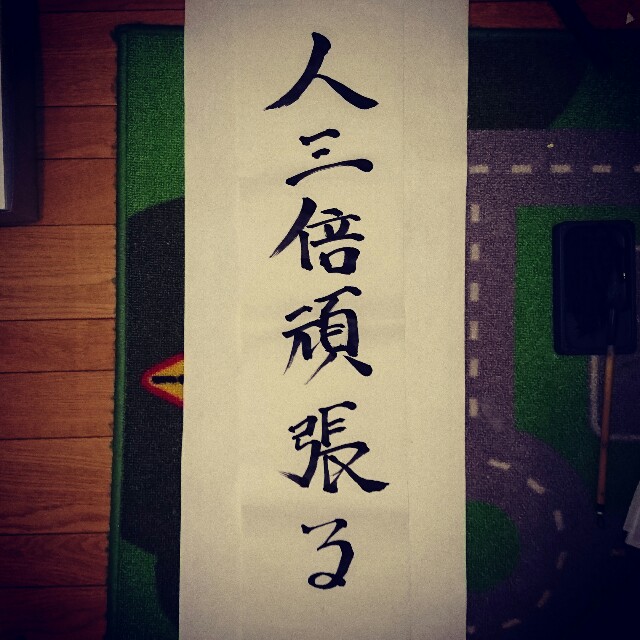 人三倍頑張る